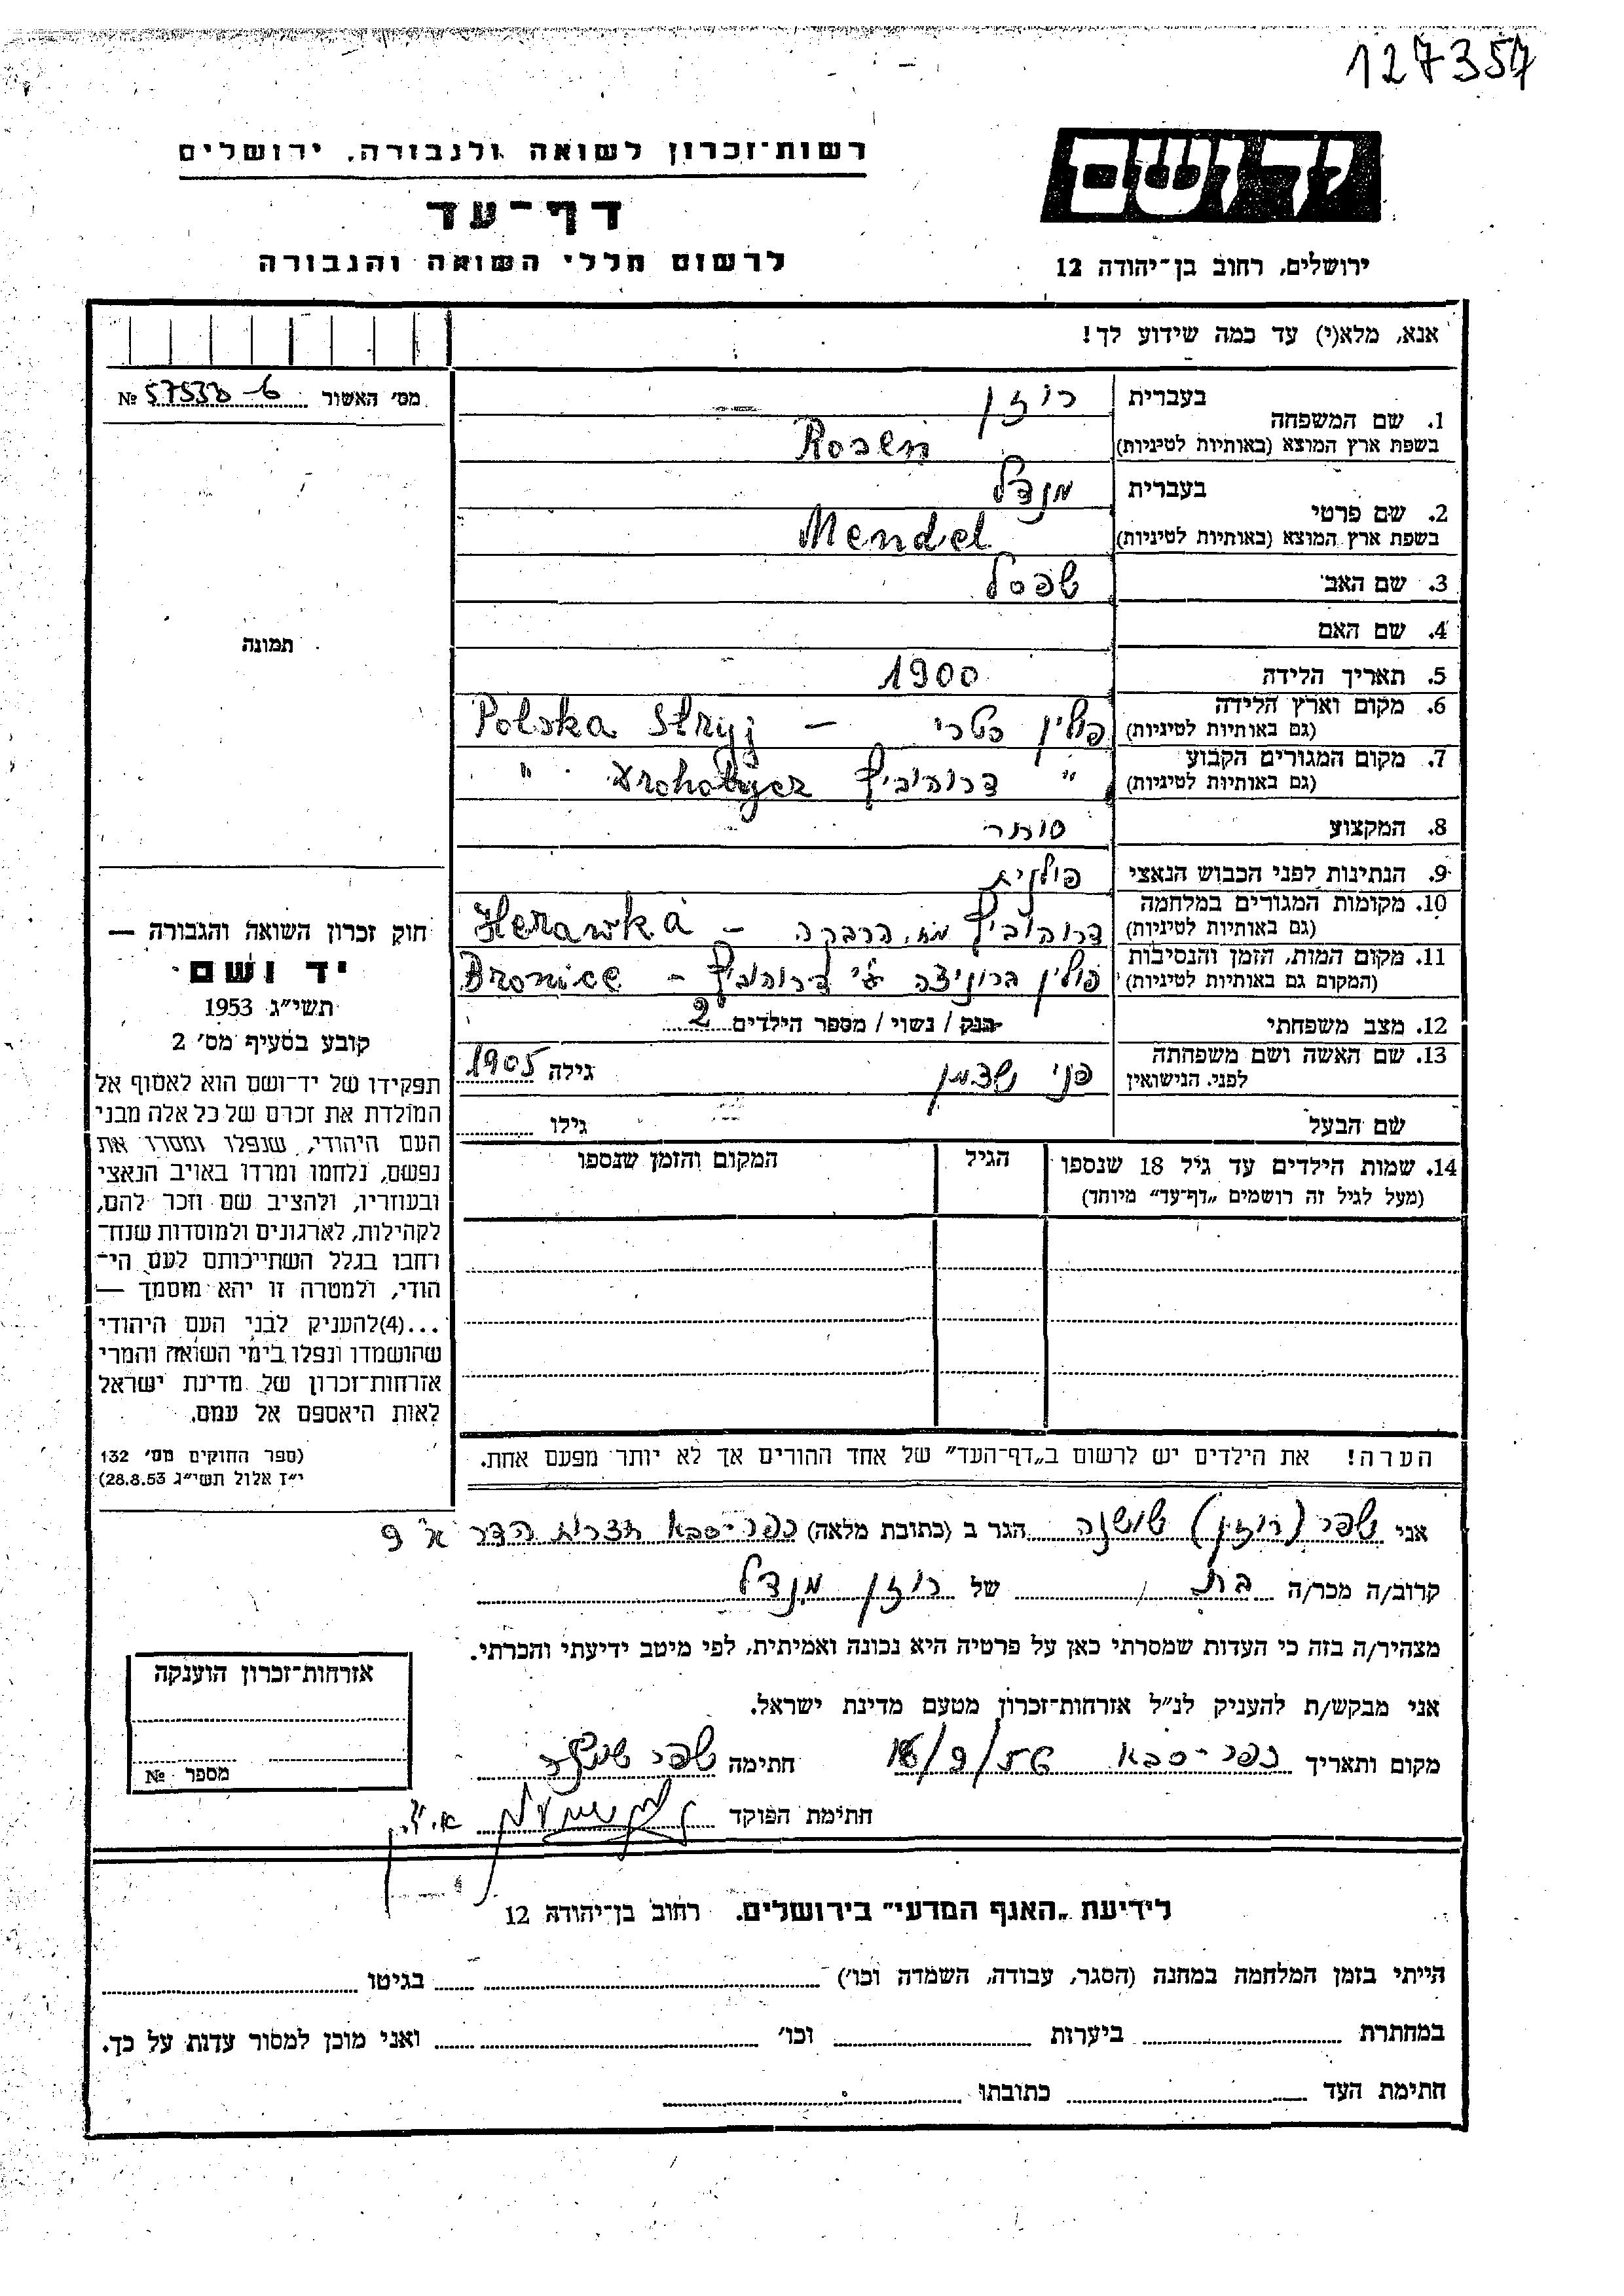 127357
יד ושם
רשות־זכרון לשואה ולגבורה, ירושלים
דף־עד
לרשום חללי השואה והגבורה
ירושלים, רחוב בן־יהודה 12
אנא, מלא(י) עד כמה שידוע לך!
מס׳ האשור № 57538-6
1. שם המשפחה בעברית רוזן
בשפת ארץ המוצא (באותיות לטיניות) Rosen
2. שם פרטי בעברית מנדל
בשפת ארץ המוצא (באותיות לטיניות) Mendel
3. שם האב שפסל
4. שם האם
5. תאריך הלידה 1900
6. מקום וארץ הלידה (גם באותיות לטיניות) פולין סטרי — Polska Stryj
7. מקום המגורים הקבוע (גם באותיות לטיניות) " דרוהוביץ Drohobycz "
8. המקצוע סוחר
9. הנתינות לפני הכבוש הנאצי פולנית
10. מקומות המגורים במלחמה (גם באותיות לטיניות) דרוהוביץ מח. הרבקה — Herawka
11. מקום המות, הזמן והנסיבות (המקום גם באותיות לטיניות) פולין ברוניצה ע״י דרוהוביץ — Bronice
12. מצב משפחתי רווק / נשוי / מספר הילדים 2
13. שם האשה ושם משפחתה לפני הנישואין פני גילה 1905
שם הבעל גילו
14. שמות הילדים עד גיל 18 שנספו הגיל המקום והזמן שנספו
(מעל לגיל זה רושמים „דף־עד״ מיוחד)
הערה! את הילדים יש לרשום ב„דף־העד״ של אחד ההורים אך לא יותר מפעם אחת.
תמונה
חוק זכרון השואה והגבורה —
יד ושם
תשי״ג 1953
קובע בסעיף מס׳ 2
תפקידו של יד־ושם הוא לאסוף אל
המולדת את זכרם של כל אלה מבני
העם היהודי, שנפלו ומסרו את
נפשם, נלחמו ומרדו באויב הנאצי
ובעוזריו, ולהציב שם וזכר להם,
לקהילות, לארגונים ולמוסדות שנח־
רחבו בגלל השתייכותם לעם הי־
הודי, ולמטרה זו יהא מוסמך —
...(4)להעניק לבני העם היהודי
שהושמדו ונפלו בימי השואה והמרי
אזרחות־זכרון של מדינת ישראל
לאות היאספם אל עמם.
(ספר החוקים מס׳ 132
י״ז אלול תשי״ג 28.8.53)
אני שפר (רוזן) שושנה הגר ב (כתובת מלאה) כפר-סבא חצרות הדר א 9
קרוב/ה מכר/ה בת של רוזן מנדל
מצהיר/ה בזה כי העדות שמסרתי כאן על פרטיה היא נכונה ואמיתית, לפי מיטב ידיעתי והכרתי.
אני מבקש/ת להעניק לנ״ל אזרחות־זכרון מטעם מדינת ישראל.
מקום ותאריך כפר-סבא חתימה שפר שושנה
חתימת הפוקד
אזרחות־זכרון הוענקה
מספר №
לידיעת „האגף המדעי״ בירושלים. רחוב בן־יהודה 12
הייתי בזמן המלחמה במחנה (הסגר, עבודה, השמדה וכו׳) בגיטו
במחתרת ביערות וכו׳ ואני מוכן למסור עדות על כך.
חתימת העד כתובתו